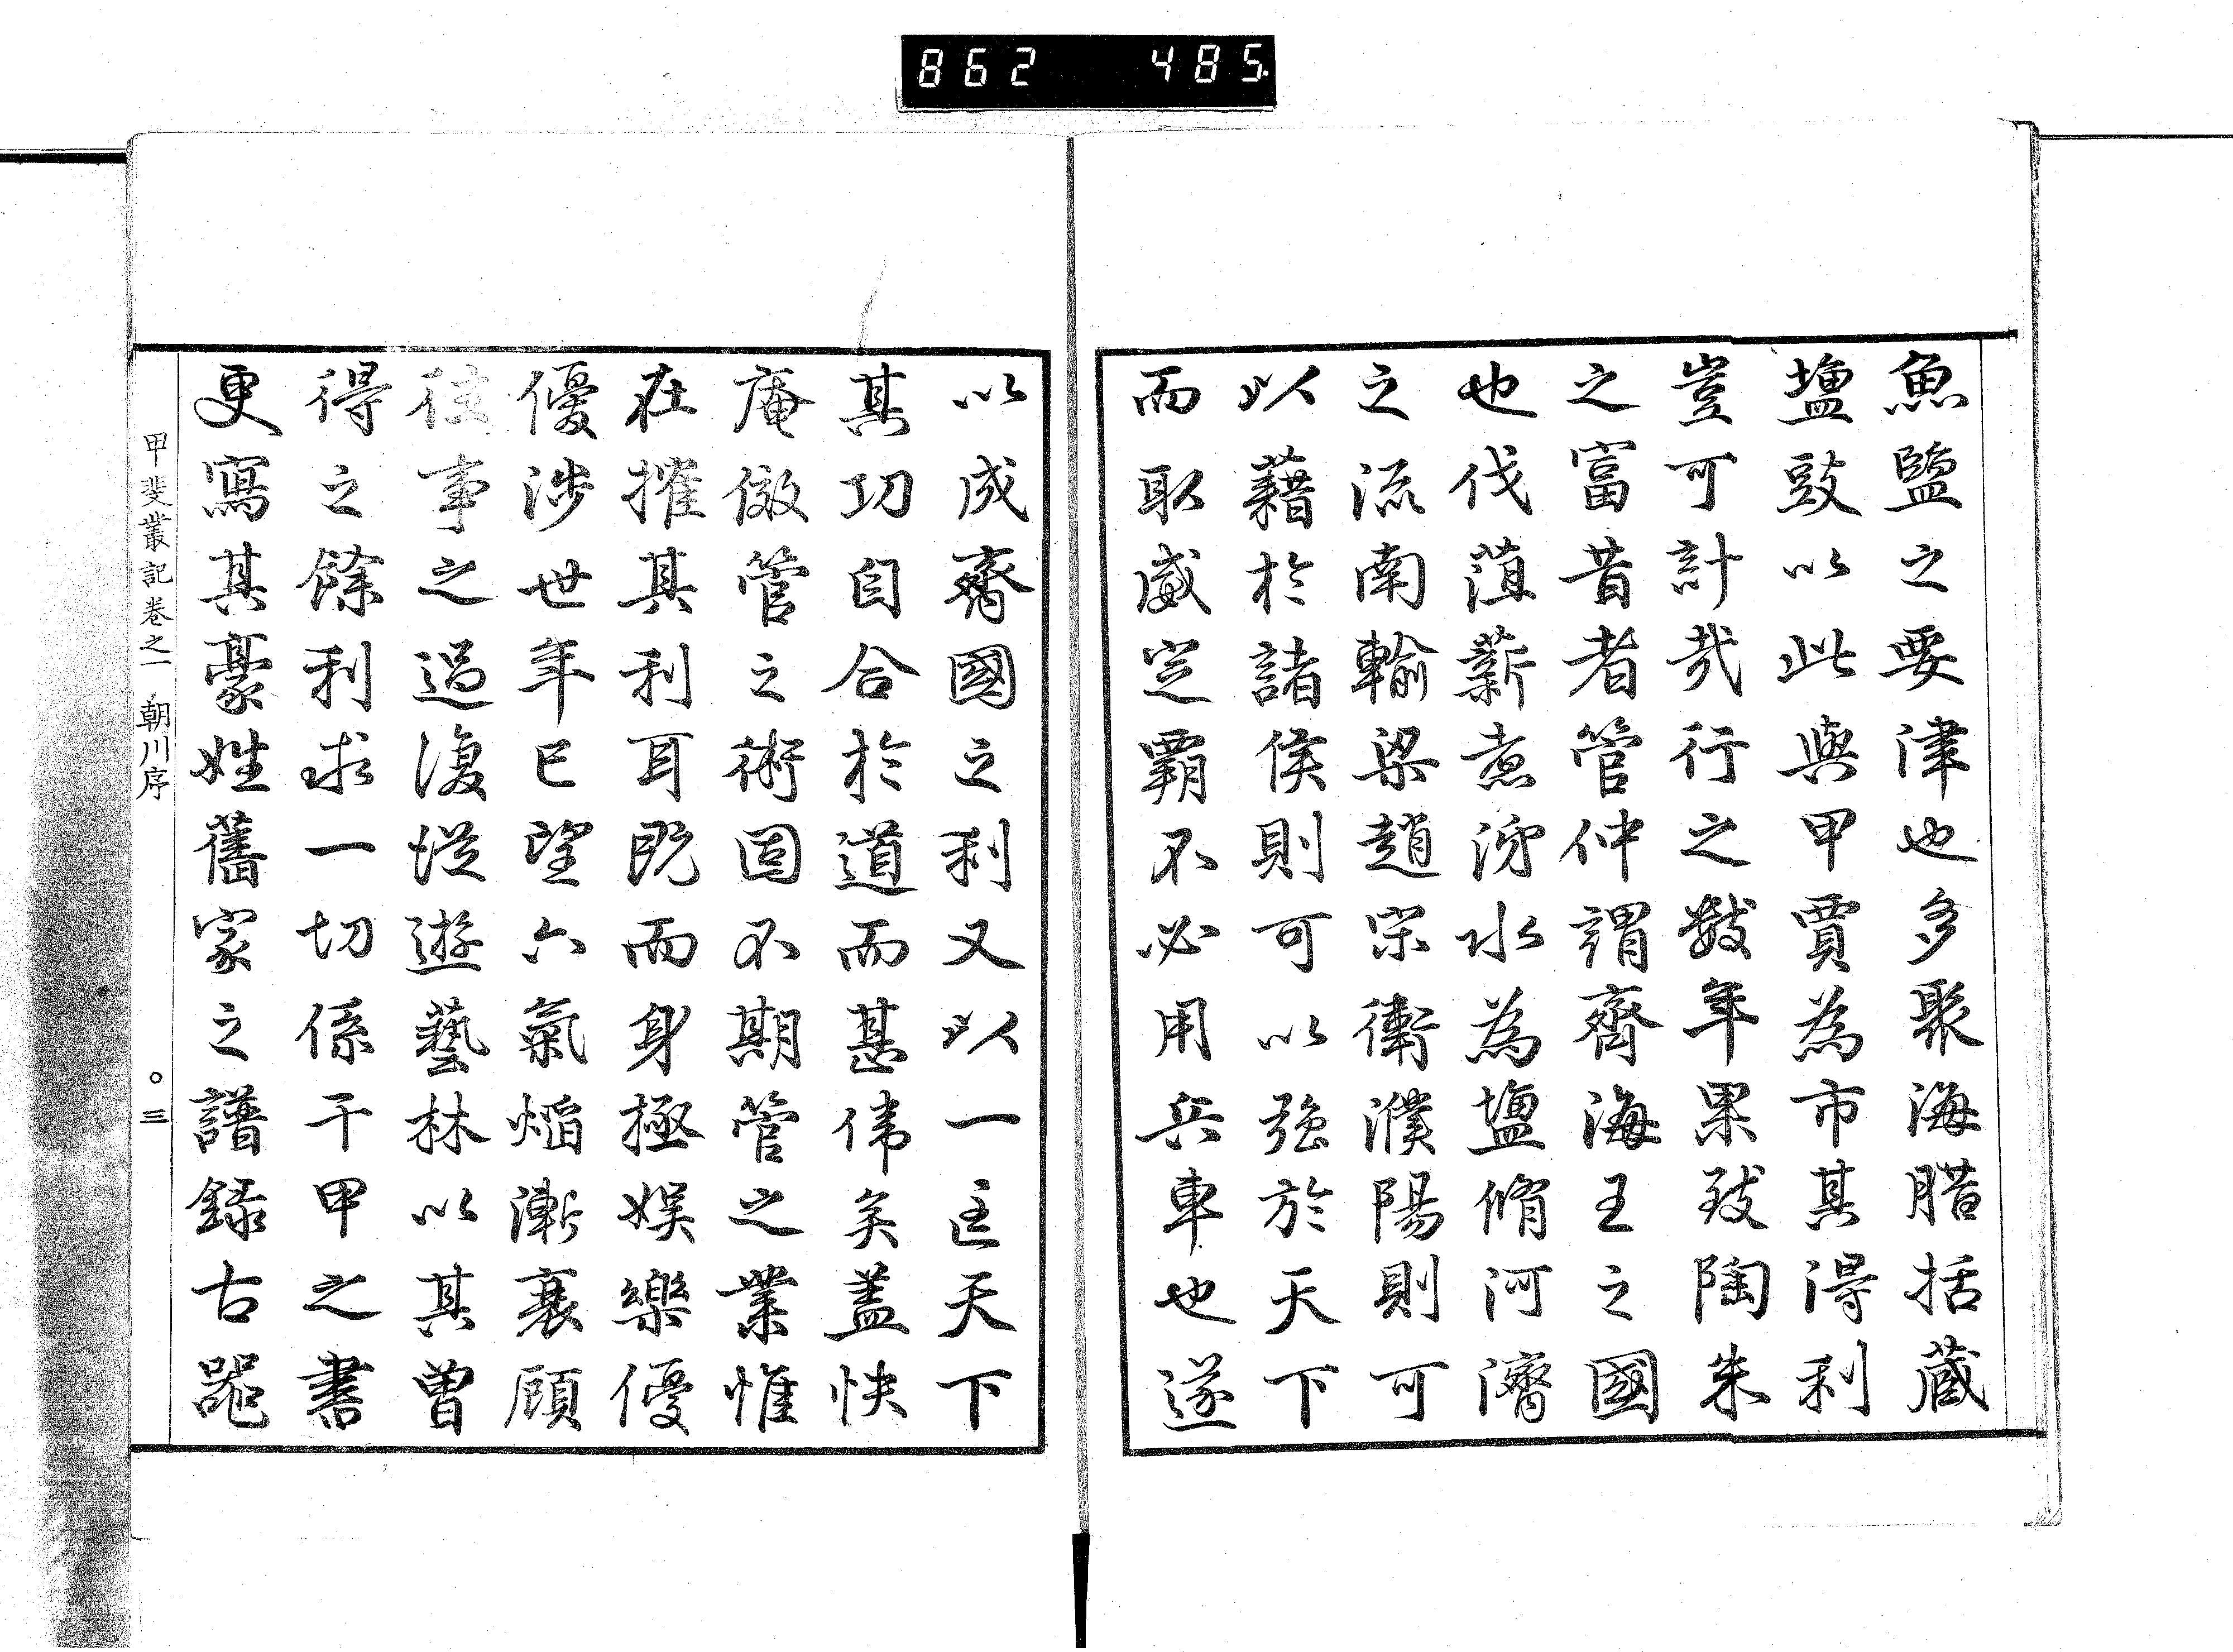 862 485
魚鹽之要津也多聚海腊括蔵
塩豉以此與甲賈為市其得利
豈可計哉行之數年果致陶朱
之富昔者管仲謂齊海王之國
也伐菹薪煮沸水為塩脩河濟
之流南輸梁趙宋衛濮陽則可
以藉於諸侯則可以強於天下
而取威定霸不必用兵車也遂
以成齊國之利又以一匡天下
其功自合於道而甚偉矣蓋快
庵倣管之術固不期管之業惟
在搉其利耳既而身極娯樂優
優涉世年已望六氣焔漸衰顧
往事之過復從遊藝林以其曽
得之餘利求一切係干甲之書
更寫其豪姓舊家之譜録古器
甲斐叢記卷之一 朝川序 ○三